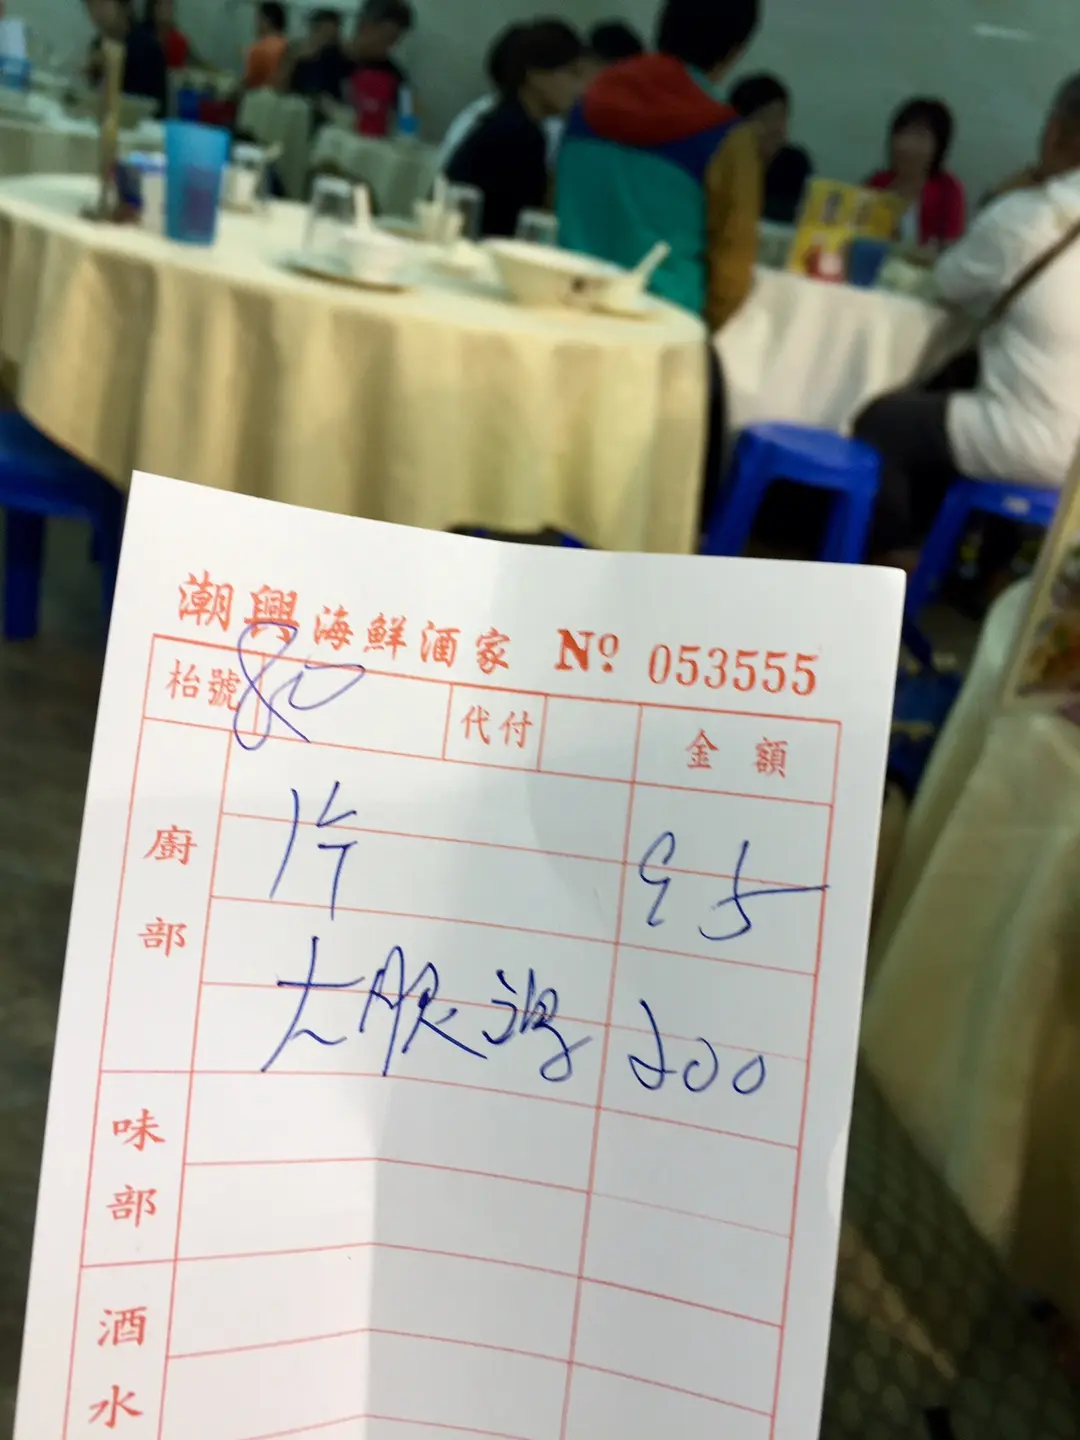 潮興海鮮酒家 Nº 053555
枱號 80 代付 金額
廚部
片 95
大眼 200
味部
酒水